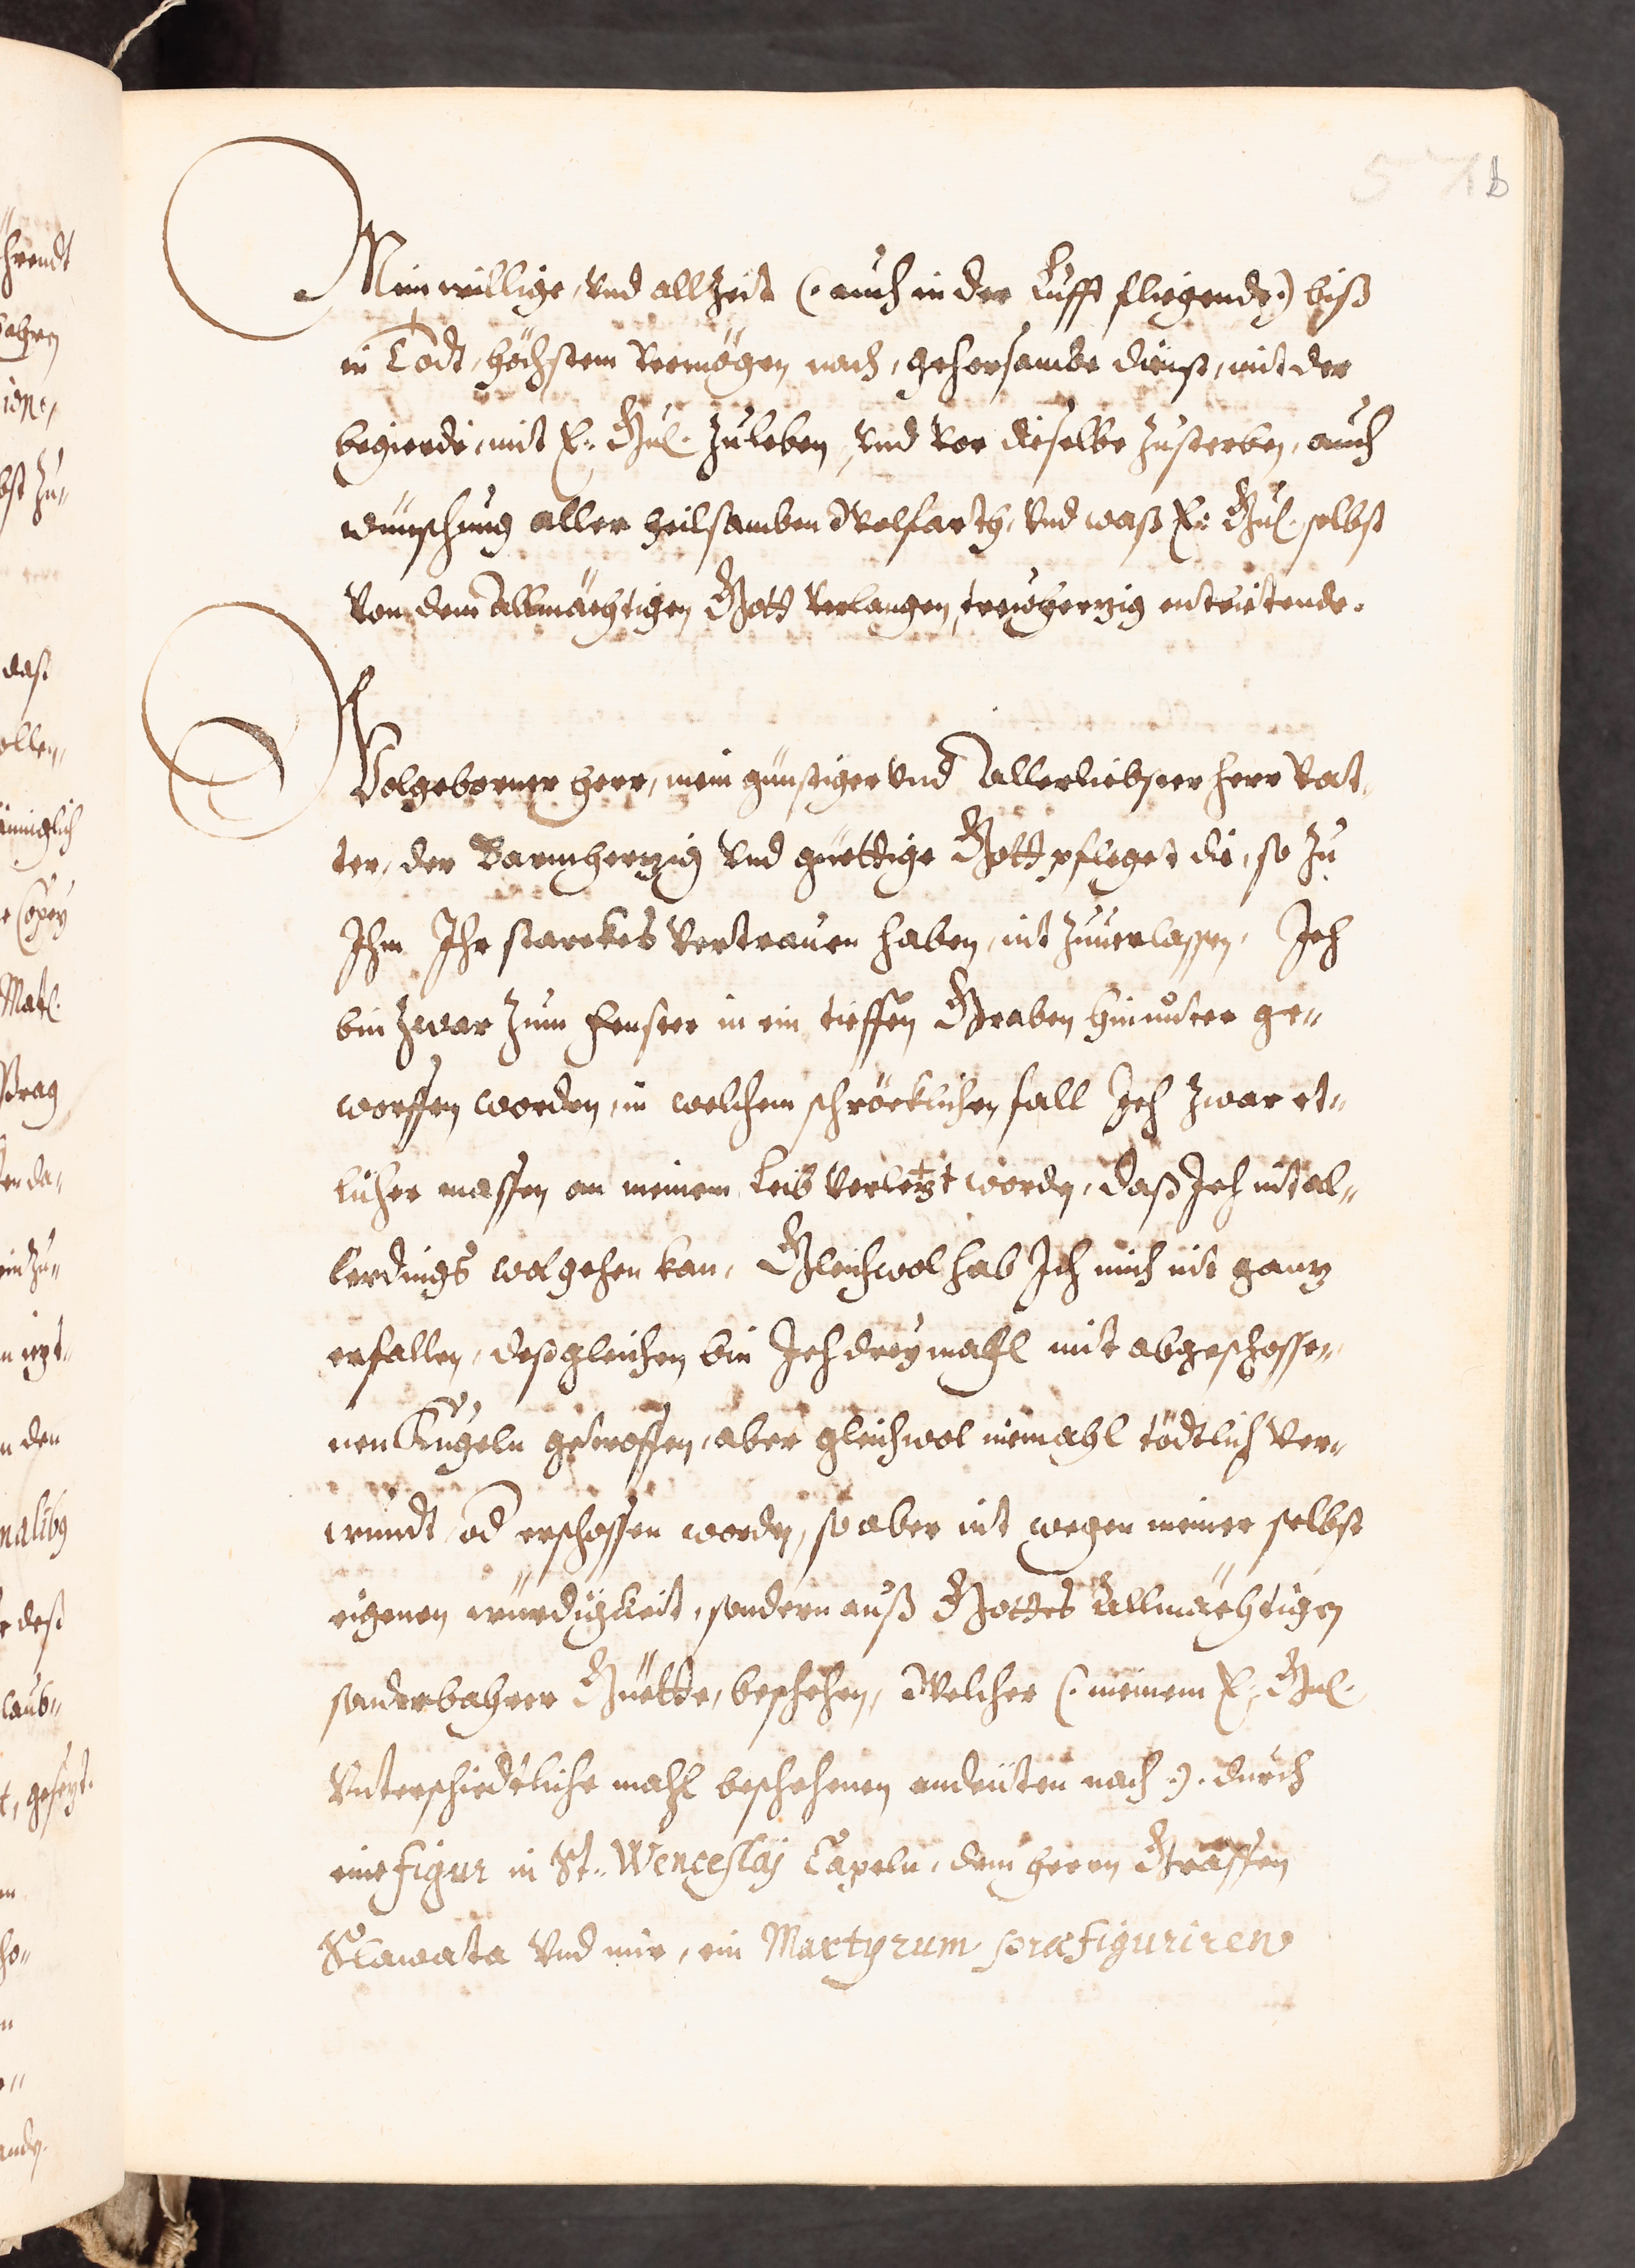 57 b
Mein willige, Vnd allZeit (: auch in der Lufft fliegende:) biß
in Todt, höchstem Vermögen nach, gehorsambe dienst, mit der
begierdt, mit E: Gnl. Zuleben, Vnd Vor dieselbe Zusterben, auch
wünschung aller heilsamben Wolfarth, Vnd waß E: Gnl. selbst
Von dem Allmächtigen Gott Verlangen, treuherzig entbietende.
Wolgeborner herr, mein günstiger Vnd Allerliebster herr Vat„
ter, der Barmherzig Vnd güettige Gott pfleget die, so Zu
Ihm Ihr starckes Vertrauen haben, nit Zuuerlassen, Ich
bin Zwar Zum Fenster in ein tieffen Graben hinunter ge„
worffen worden, in welchem schröcklichen fall Ich Zwar et„
licher massen an meinem Leib Verlezt worden, daß Ich nit al„
lerdings wol gehen kan, Gleichwol hab Ich mich nit ganz
erfallen, deßgleichen bin Ich dreymahl mit abgeschosse„
nen Kugeln getroffen, aber gleichwol niemahl tödtlich Ver„
wundt od erschossen worden, so aber nit wegen meiner selbst
eigenen würdigkeit, sondern auß Gottes Allmächtigen
sonderbahrer Güette, beschehen, Welcher (: meinem E: Gnl.
Vnterschiedtliche mahl beschehenen andeüten nach :). durch
eine Figur in St. Wenceslaj Capeln, dem herrn Graffen
Slawata Vnd mir, ein Martyrum præfiguriren